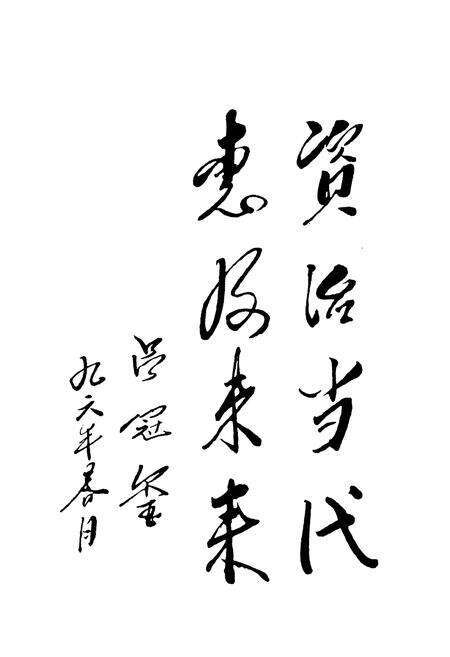 資治当代
惠及未来
吕冠玺
九六年春月